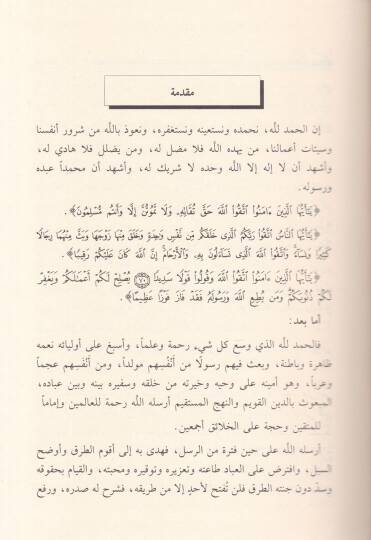 مقدمة
إن الحمد للَّه، نحمده ونستعينه ونستغفره، ونعوذ باللَّه من شرور أنفسنا
وسيئات أعمالنا، من يهده اللَّه فلا مضل له، ومن يضلل فلا هادي له،
وأشهد أن لا إله إلا اللَّه وحده لا شريك له، وأشهد أن محمداً عبده
ورسوله.
﴿يَتأَيُّهَا الَّذِينَ ءَامَنُوا اتَّقُوا اللَّهَ حَقَّ تُقَالِهِ، وَلَا تَمُوتُنَّ إِلَّا وَأَنتُم مُّسْلِمُونَ﴾.
﴿يَتأَيُّهَا النَّاسُ اتَّقُوا رَبَّكُمُ الَّذِى خَلَقَكُم مِّن نَّفْسٍ وَحِدَةٍ وَخَلَقَ مِنْهَا زَوْجَهَا وَبَثَّ مِنْهُمَا رِجَالًا
كَثِيرًا وَنِسَآءً وَاتَّقُوا اللَّهَ الَّذِى تَسَآءَلُونَ بِهِ، وَالْأَرْحَامَ إِنَّ اللَّهَ كَانَ عَلَيْكُمْ رَقِيبًا﴾.
﴿يَتأَيُّهَا الَّذِينَ ءَامَنُوا اتَّقُوا اللَّهَ وَقُولُوا قَوْلًا سَدِيدًا ۝٧٠ يُصْلِحْ لَكُمْ أَعْمَلَكُمْ وَيَغْفِرْ
لَكُمْ ذُنُوبَكُمْ وَمَن يُطِعِ اللَّهَ وَرَسُولَهُ فَقَدْ فَازَ فَوْزًا عَظِيمًا﴾.
أما بعد:
فالحمد للَّه الذي وسع كل شيء رحمة وعلماً، وأسبغ على أوليائه نعمه
ظاهرة وباطنة، وبعث فيهم رسولًا من أَنْفُسِهم مولداً، ومن أَنْفَسِهم عجماً
وعرباً، وهو أمينه على وحيه وخيرته من خلقه وسفيره بينه وبين عباده،
المبعوث بالدين القويم والنهج المستقيم أرسله اللَّه رحمة للعالمين وإماماً
للمتقين وحجة على الخلائق أجمعين.
أرسله اللَّه على حين فترة من الرسل، فهدى به إلى أقوم الطرق وأوضح
السبل، وافترض على العباد طاعته وتعزيره وتوقيره ومحبته، والقيام بحقوقه
وسدّ دون جنته الطرق فلن تُفتح لأحدٍ إلا من طريقه، فشرح له صدره، ورفع